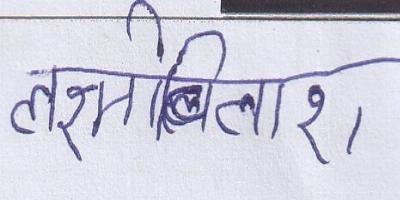 लक्ष्मीविलाश।